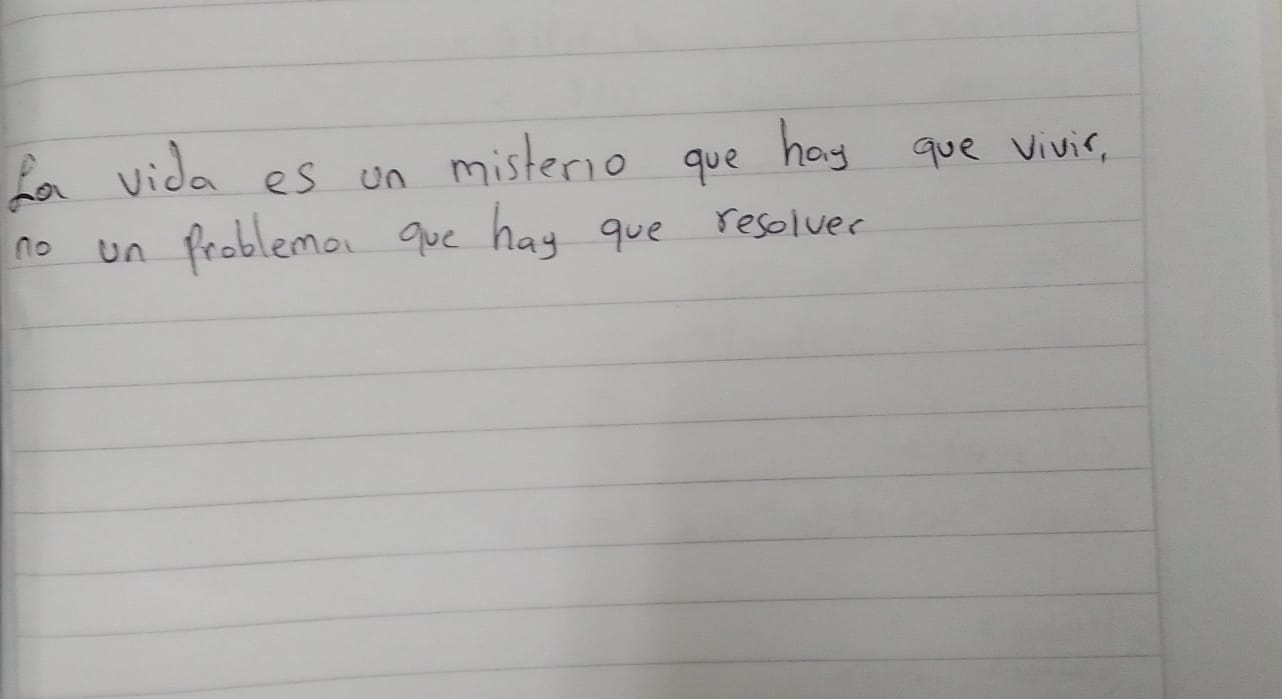 La vida es un misterio que hay que vivir,
no un problema que hay que resolver